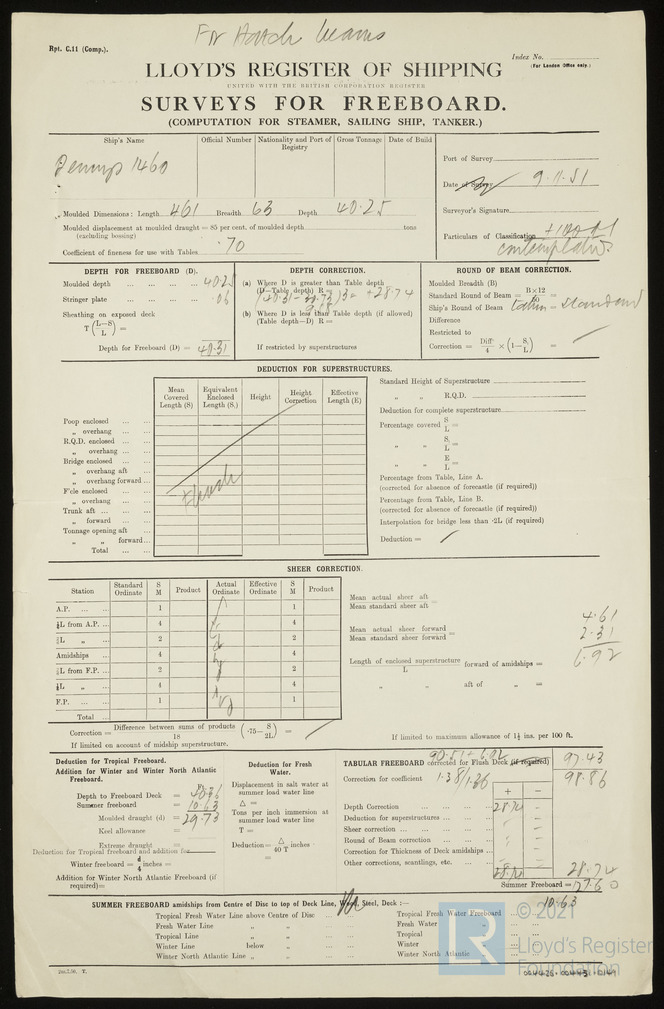 For Hatch beams
Rpt. C.11 (Comp.).
Index No.
(For London Office only.)
LLOYD'S REGISTER OF SHIPPING
UNITED WITH THE BRITISH CORPORATION REGISTER
SURVEYS FOR FREEBOARD.
(COMPUTATION FOR STEAMER, SAILING SHIP, TANKER.)
Ship's Name Official Number Nationality and Port of Registry Gross Tonnage Date of Build
1460
Port of Survey
Date of Survey 9.11.51
Surveyor's Signature
Particulars of Classification +100A1
contemplated
Moulded Dimensions: Length 461 Breadth 63 Depth 40.25
Moulded displacement at moulded draught = 85 per cent. of moulded depth tons
(excluding bossing)
Coefficient of fineness for use with Tables .70
DEPTH FOR FREEBOARD (D).
Moulded depth ... ... ... ... 40.25
Stringer plate ... ... ... ... .06
Sheathing on exposed deck
T (L—S/L) =
Depth for Freeboard (D) = 40.31
DEPTH CORRECTION.
(a) Where D is greater than Table depth
(D—Table depth) R =
(40.31 - 30.73) 3 = +28.74
(b) Where D is less than Table depth (if allowed)
(Table depth—D) R =
If restricted by superstructures
ROUND OF BEAM CORRECTION.
Moulded Breadth (B)
Standard Round of Beam = B×12/50 =
Ship's Round of Beam = standard
Difference
Restricted to
Correction = Diff/4 × (1—S₁/L) =
DEDUCTION FOR SUPERSTRUCTURES.
Mean Covered Length (S) Equivalent Enclosed Length (S₁) Height Height Correction Effective Length (E)
Poop enclosed ... ...
„ overhang ... ...
R.Q.D. enclosed ... ...
„ overhang ... ...
Bridge enclosed ... ...
„ overhang aft
„ overhang forward ...
F'cle enclosed ... ...
„ overhang ... ...
Trunk aft ... ... ...
„ forward ... ...
Tonnage opening aft ...
„ „ forward...
Total ... ...
Flush
Standard Height of Superstructure
„ „ R.Q.D.
Deduction for complete superstructure
Percentage covered S/L =
„ „ S₁/L =
„ „ E/L =
Percentage from Table, Line A.
(corrected for absence of forecastle (if required))
Percentage from Table, Line B.
(corrected for absence of forecastle (if required))
Interpolation for bridge less than ·2L (if required)
Deduction =
SHEER CORRECTION.
Station Standard Ordinate S M Product Actual Ordinate Effective Ordinate S M Product
A.P. ... ... 1 1
⅙L from A.P. ... 4 4
⅓L „ ... 2 2
Amidships ... 4 4
⅓L from F.P. ... 2 2
⅙L „ ... 4 4
F.P. ... ... 1 1
Total ...
Mean actual sheer aft
Mean standard sheer aft =
Mean actual sheer forward
Mean standard sheer forward =
Length of enclosed superstructure/L forward of amidships =
„ „ aft of „ =
4.61
2.31
6.92
Correction = Difference between sums of products/18 (·75— S/2L) =
If limited on account of midship superstructure.
If limited to maximum allowance of 1½ ins. per 100 ft.
Deduction for Tropical Freeboard.
Addition for Winter and Winter North Atlantic Freeboard.
Depth to Freeboard Deck = 40.36
Summer freeboard = 10.63
Moulded draught (d) = 29.73
Keel allowance =
Extreme draught =
Deduction for Tropical freeboard and addition for
Winter freeboard = d/4 inches =
Addition for Winter North Atlantic Freeboard (if required)=
Deduction for Fresh Water.
Displacement in salt water at summer load water line
△ =
Tons per inch immersion at summer load water line
T =
Deduction= △/40 T inches ·
=
90.51 + 6.92
TABULAR FREEBOARD corrected for Flush Deck (if required) 97.43
Correction for coefficient 1.38/1.36 98.86
+ —
Depth Correction ... ... ... ... 28.74
Deduction for superstructures ... ...
Sheer correction ... ... ... ...
Round of Beam correction ... ...
Correction for Thickness of Deck amidships ...
Other corrections, scantlings, etc. ... ...
28.74 28.74
Summer Freeboard = 127.60
SUMMER FREEBOARD amidships from Centre of Disc to top of Deck Line, Wood, Steel, Deck :— 10.63
Tropical Fresh Water Line above Centre of Disc ...
Fresh Water Line „ „ ...
Tropical Line „ „ ...
Winter Line below „ ...
Winter North Atlantic Line „ „ ...
Tropical Fresh Water Freeboard ...
Fresh Water „ ...
Tropical „ ...
Winter „ ...
Winter North Atlantic „ ...
© 2021
LR
Lloyd's Register
Foundation
002428-002443-0149